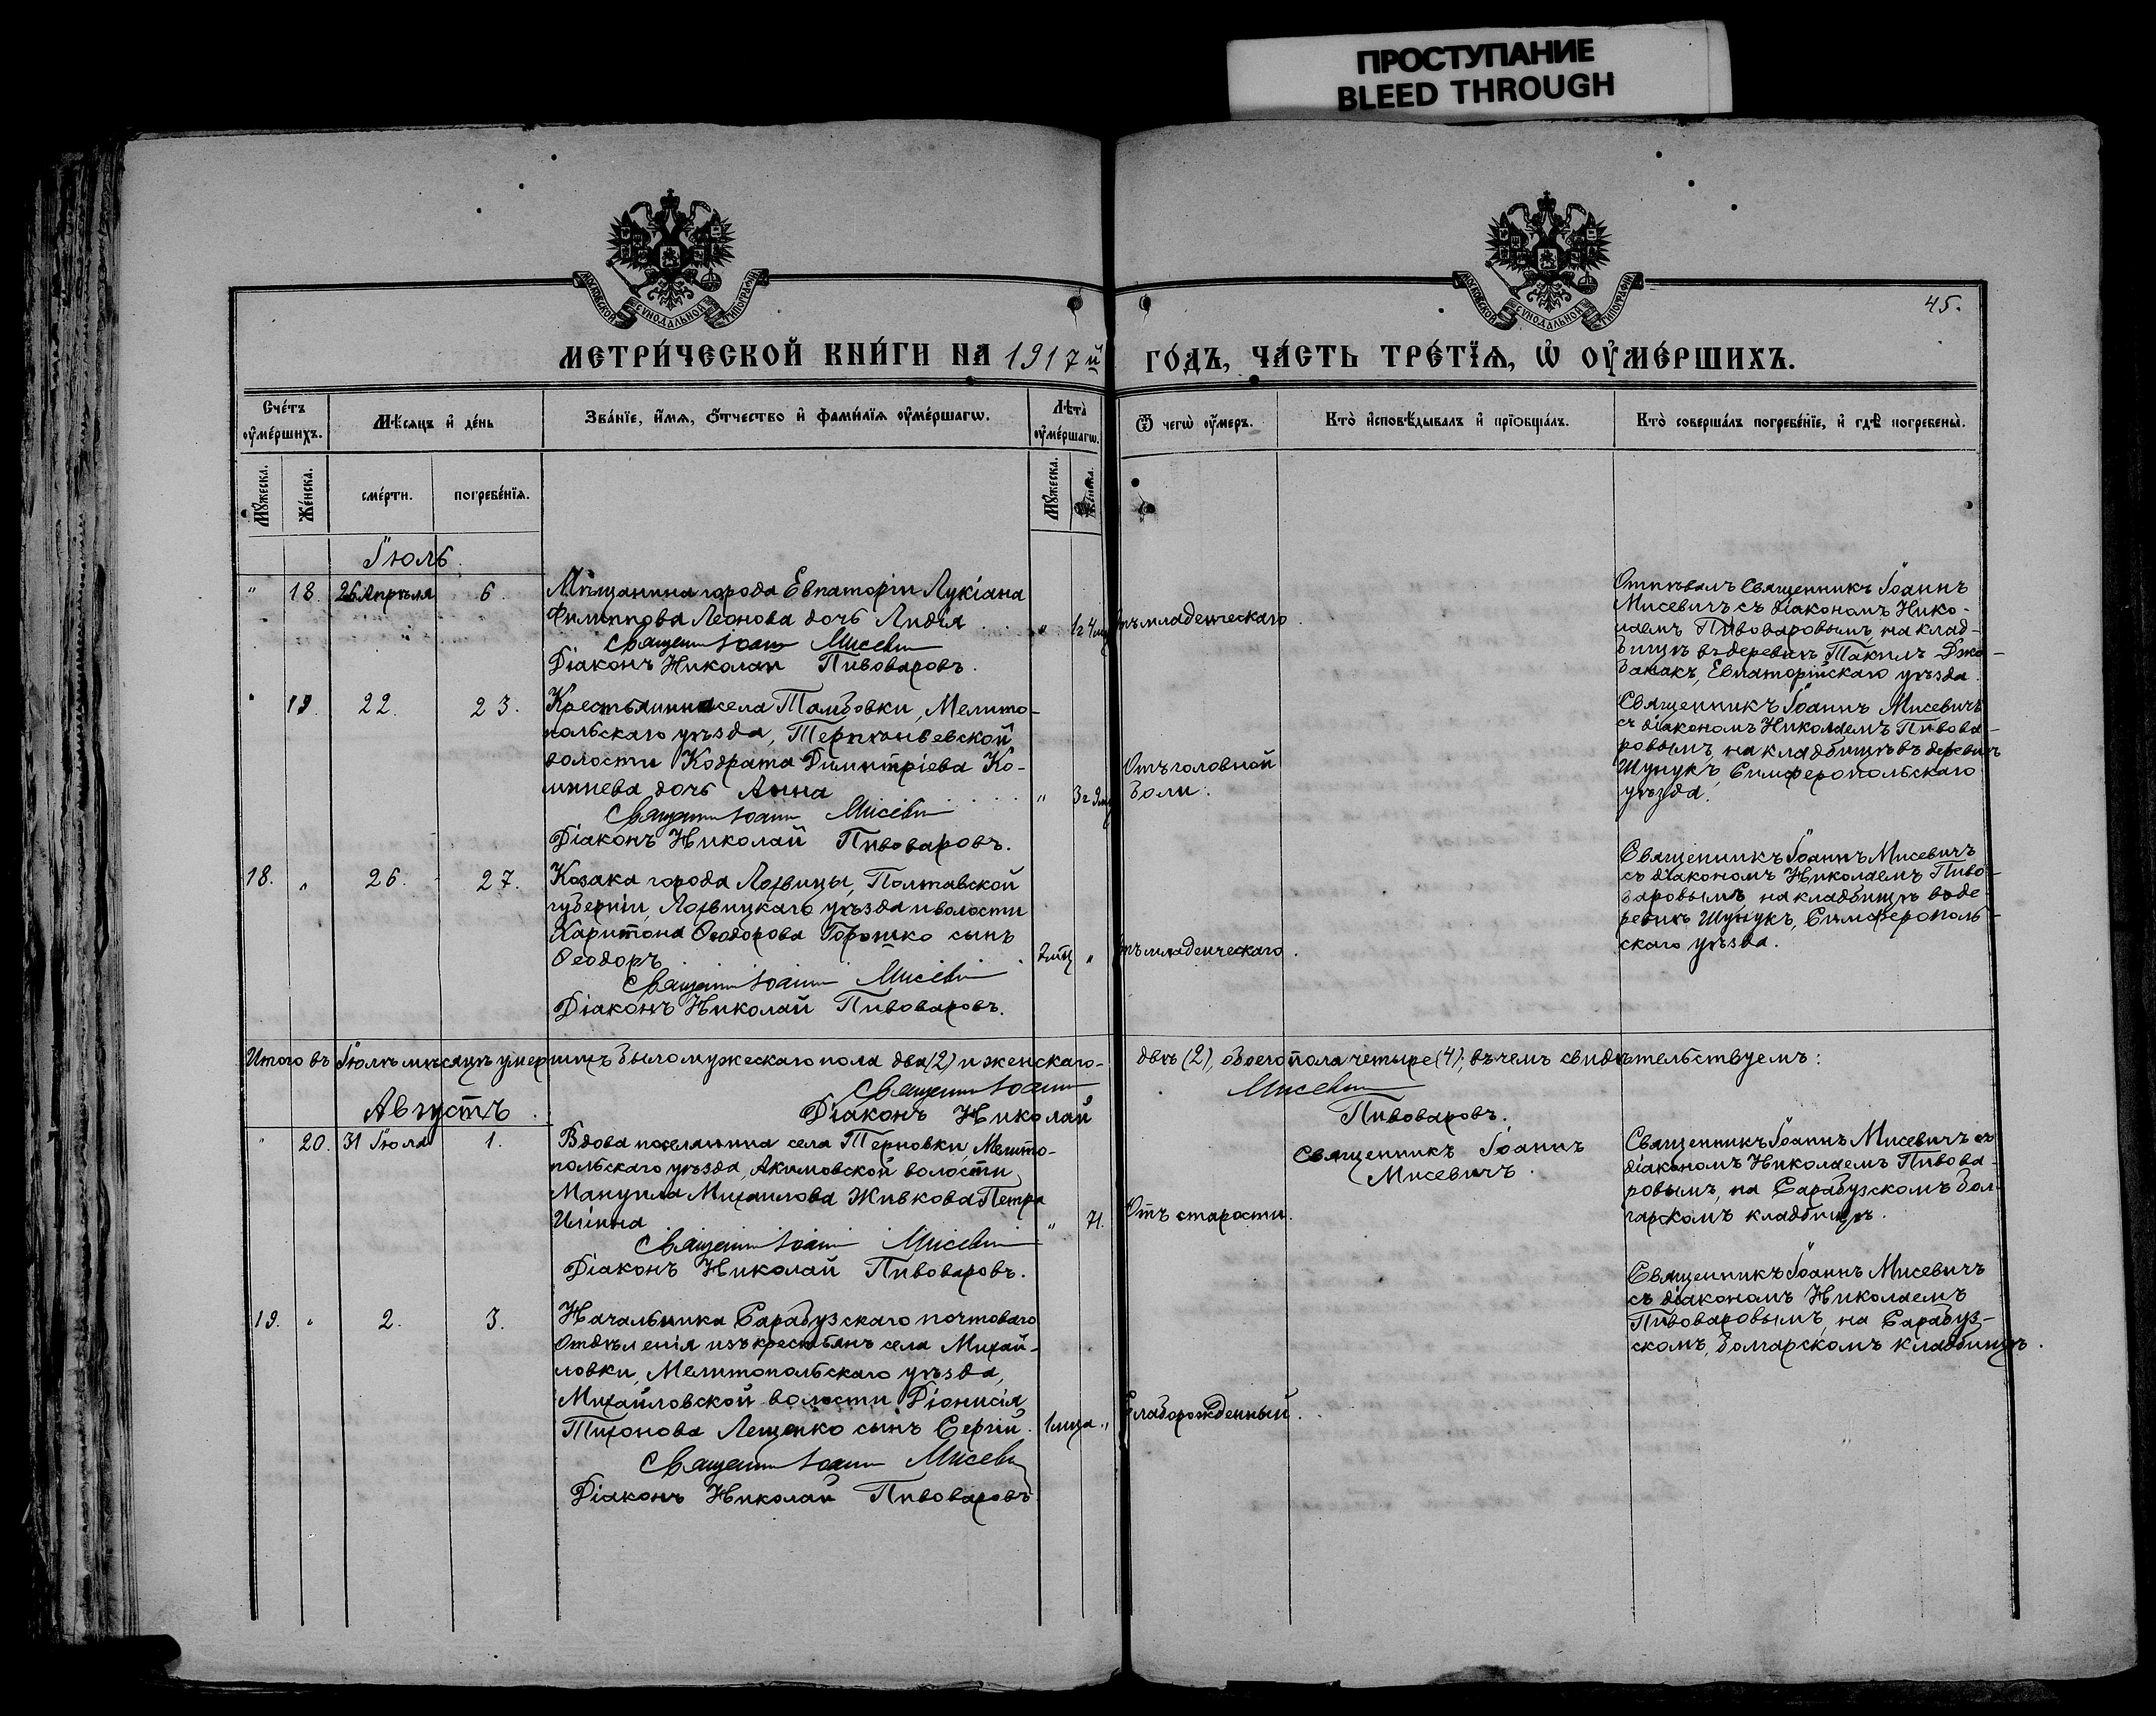 ПРОСТУПАНИЕ
BLEED THROUGH
МОСКОВСКОЙ СѴНОДАЛЬНОЙ ТИПОГРАФІИ
МОСКОВСКОЙ СѴНОДАЛЬНОЙ ТИПОГРАФІИ
45.
МЕТРИ́ЧЕСКОЙ КНИ́ГИ НА 1917й
ГО́ДЪ, ЧА́СТЬ ТРЕ́ТЇѦ, Ѡ ОУ҆МЕ́РШИХЪ.
Сче́тъ оу҆ме́ршихъ.
Мѣ́сяцъ и҆ де́нь
Зва́нїе, и҆́мя, ѻ҆́тчество и҆ фами́лїя оу҆ме́ршагѡ.
Лѣ́та оу҆ме́ршагѡ.
Ѿ чегѡ̀ оу҆́меръ.
Кто̀ и҆сповѣ́дывалъ и҆ прїобща́лъ.
Кто̀ соверша́лъ погребе́нїе, и҆ гдѣ̀ погребены̀.
Мꙋ́жеска.
Же́нска.
сме́рти.
погребе́нїя.
Мꙋ́жеска.
Же́нска.
Іюль.
" 18. 26 Апрѣля 6.
Мѣщанина города Евпаторіи Лукіана
Филиппова Леонова дочь Лидія
Священ Іоанн Мисевич
Діаконъ Николай Пивоваровъ.
" 1г 4мц
младенческаго.
Отпѣвалъ Священникъ Іоаннъ
Мисевичъ съ діакономъ Нико-
лаемъ Пивоваровымъ, на клад-
бищѣ въ деревнѣ Такилъ Джа-
банакъ, Евпаторійскаго уѣзда.
" 19. 22. 23.
Крестьянина села Тамбовки, Мелито-
польскаго уѣзда, Терпѣньевской
волости Кодрата Димитріева Ко-
шнева дочь Анна
Священ Іоанн Мисевич
Діаконъ Николай Пивоваровъ.
" 3г 9мц
Отъ головной
боли.
Священникъ Іоаннъ Мисевичъ
съ діакономъ Николаемъ Пивова-
ровымъ, на кладбищѣ въ деревнѣ
Шунукъ, Симферопольскаго
уѣзда.
18. " 26. 27.
Козака города Лохвицы, Полтавской
губерніи, Лохвицкаго уѣзда и волости
Харитона Ѳеодорова Горошко сынъ
Ѳеодоръ
Священ Іоанн Мисевич
Діаконъ Николай Пивоваровъ.
2мц "
младенческаго.
Священникъ Іоаннъ Мисевичъ
съ діакономъ Николаемъ Пиво-
варовымъ на кладбищѣ въ де-
ревнѣ Шунукъ, Симферополь-
скаго уѣзда.
Итого въ Іюлѣ мѣсяцѣ умершихъ было мужескаго пола два (2) и женскаго- двѣ (2), обоего пола четыре (4); въ чемъ свидѣтельствуемъ:
Священ Іоанн Мисевич
Діаконъ Николай Пивоваровъ.
Августъ.
" 20. 31 Іюля 1.
Вдова поселянина села Терновки, Мелито-
польскаго уѣзда, Акимовской волости
Мануила Михаилова Живкова Петра
Иліина
Священ Іоанн Мисевич
Діаконъ Николай Пивоваровъ.
" 71.
Отъ старости.
Священникъ Іоаннъ
Мисевичъ.
Священникъ Іоаннъ Мисевичъ съ
діакономъ Николаемъ Пивова-
ровымъ, на Сарабузскомъ бол-
гарскомъ кладбищѣ.
19. " 2. 3.
Начальника Сарабузскаго почтоваго
отдѣленія изъ крестьянъ села Михай-
ловки, Мелитопольскаго уѣзда,
Михайловской волости Діонисія
Тихонова Лещенко сынъ Сергій.
Священ Іоанн Мисевич
Діаконъ Николай Пивоваровъ
1мца "
Слаборожденный.
Священникъ Іоаннъ Мисевичъ
съ діакономъ Николаемъ
Пивоваровымъ, на Сарабуз-
скомъ, болгарскомъ кладбищѣ.